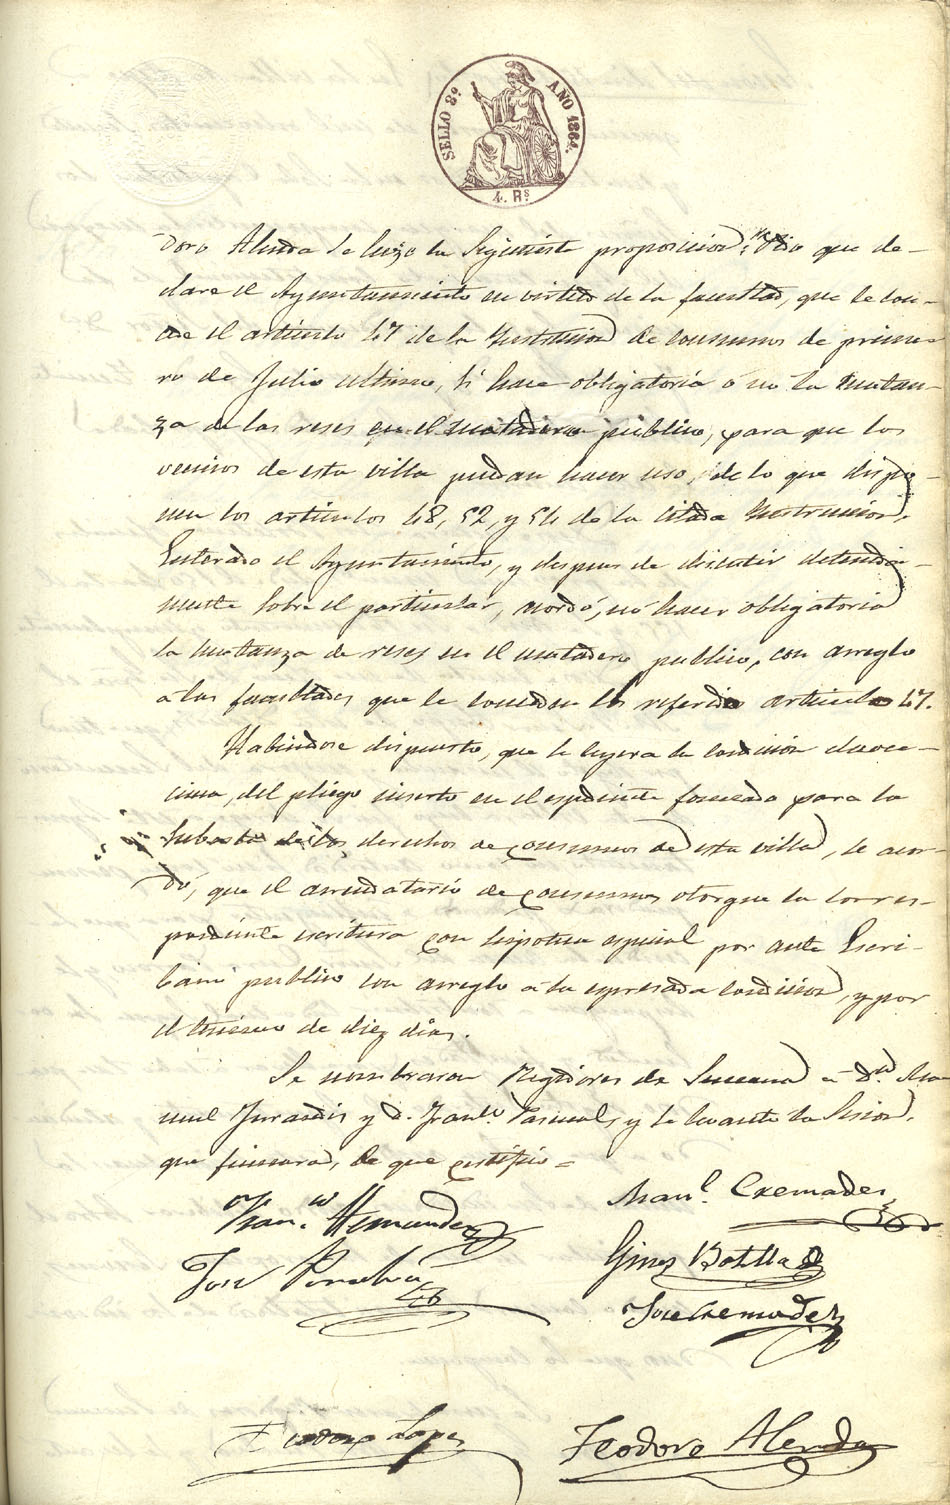 SELLO 8º AÑO 1864.
4. Rs
doro Alenda se hizo la siguiente proposicion: "Pido que de-
clare el Ayuntamiento en virtud de la facultad, que le con-
cede el articulo 47 de la Instruccion de consumos de prime-
ro de Julio ultimo, si hace obligatoria ó no la matan-
za de las reses en el matadero publico, para que los
vecinos de esta villa puedan hacer uso, de lo que dispo-
nen los articulos 48, 52, y 54 de la citada Instruccion.
Enterado el Ayuntamiento, y despues de discutir detenida-
mente sobre el particular, acordó, no hacer obligatoria
la matanza de reses en el matadero publico, con arreglo
á las facultades que le conceden el referido articulo 47.
Habiendose dispuesto, que se leyera la condicion duode-
cima, del pliego inserto en el espediente formado para la
subasta de los derechos de consumos de esta villa, se acor-
dó, que el arrendatario de consumos otorgue la corres-
pondiente escritura con hipoteca especial por ante Escri-
bano publico con arreglo á la espresada condicion, y por
el termino de diez dias.
Se nombraron Regidores de Semana á Dn. Ma-
nuel Jurandis y D. Franco. Pascual, y se levanto la sesion,
que firmara, de que certifico =
Franco. Hernandez
Manl. Cremades
José Penalva
Gines Botella
Jose Cremades
Teodoro Lopez
Teodoro Alenda